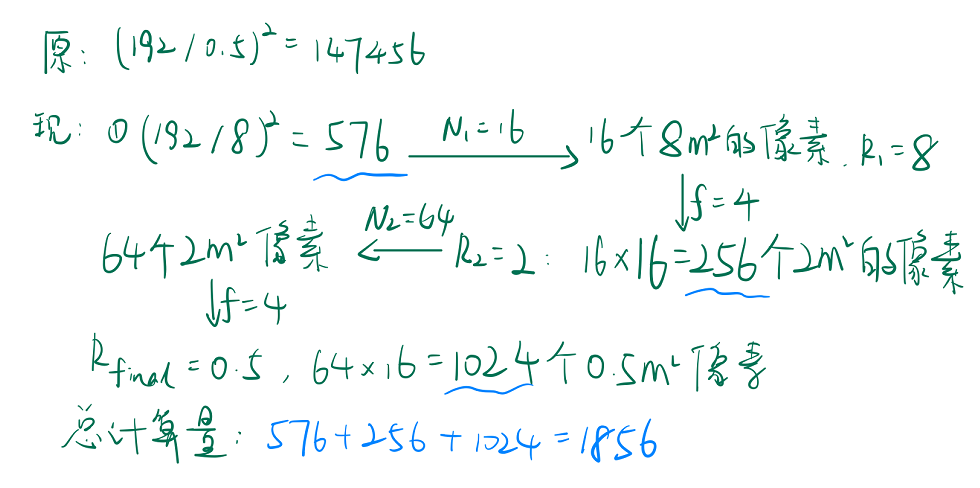 原: (192/0.5)²=147456
现: ①(192/8)²=576 N₁=16 16个8m²的像素. R₁=8
↓f=4
64个2m²像素 ← N₂=64 R₂=2: 16×16=256个2m²的像素
↓f=4
R_final=0.5, 64×16=1024个0.5m²像素
总计算量: 576+256+1024=1856